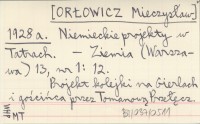 [ORŁOWICZ Mieczysław]
1928 a. Niemieckie projekty w
Tatrach. – Ziemia (Warsza-
wa) 13, nr 1: 12.
Projekt kolejki na Gierlach
i gościńca przez Tomanową Przełęcz.
WHP
MT